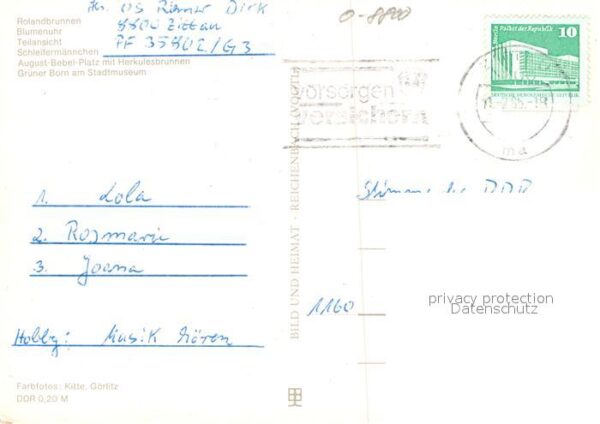 Rolandbrunnen
Blumenuhr
Teilansicht
Schleifermännchen
August-Bebel-Platz mit Herkulesbrunnen
Grüner Born am Stadtmuseum
OS Dirk
8800 Zittau
PF 35802/G3
0-8800
Palast der Republik 10
DEUTSCHE DEMOKRATISCHE REPUBLIK
vorsorgen
versichern
1. Lola
2. Rosmarie
3. Joana
Hobby: Musik hören
Stimme der DDR
1160
privacy protection
Datenschutz
BILD UND HEIMAT · REICHENBACH (VOGTL)
Farbfotos: Kitte, Görlitz
DDR 0,20 M